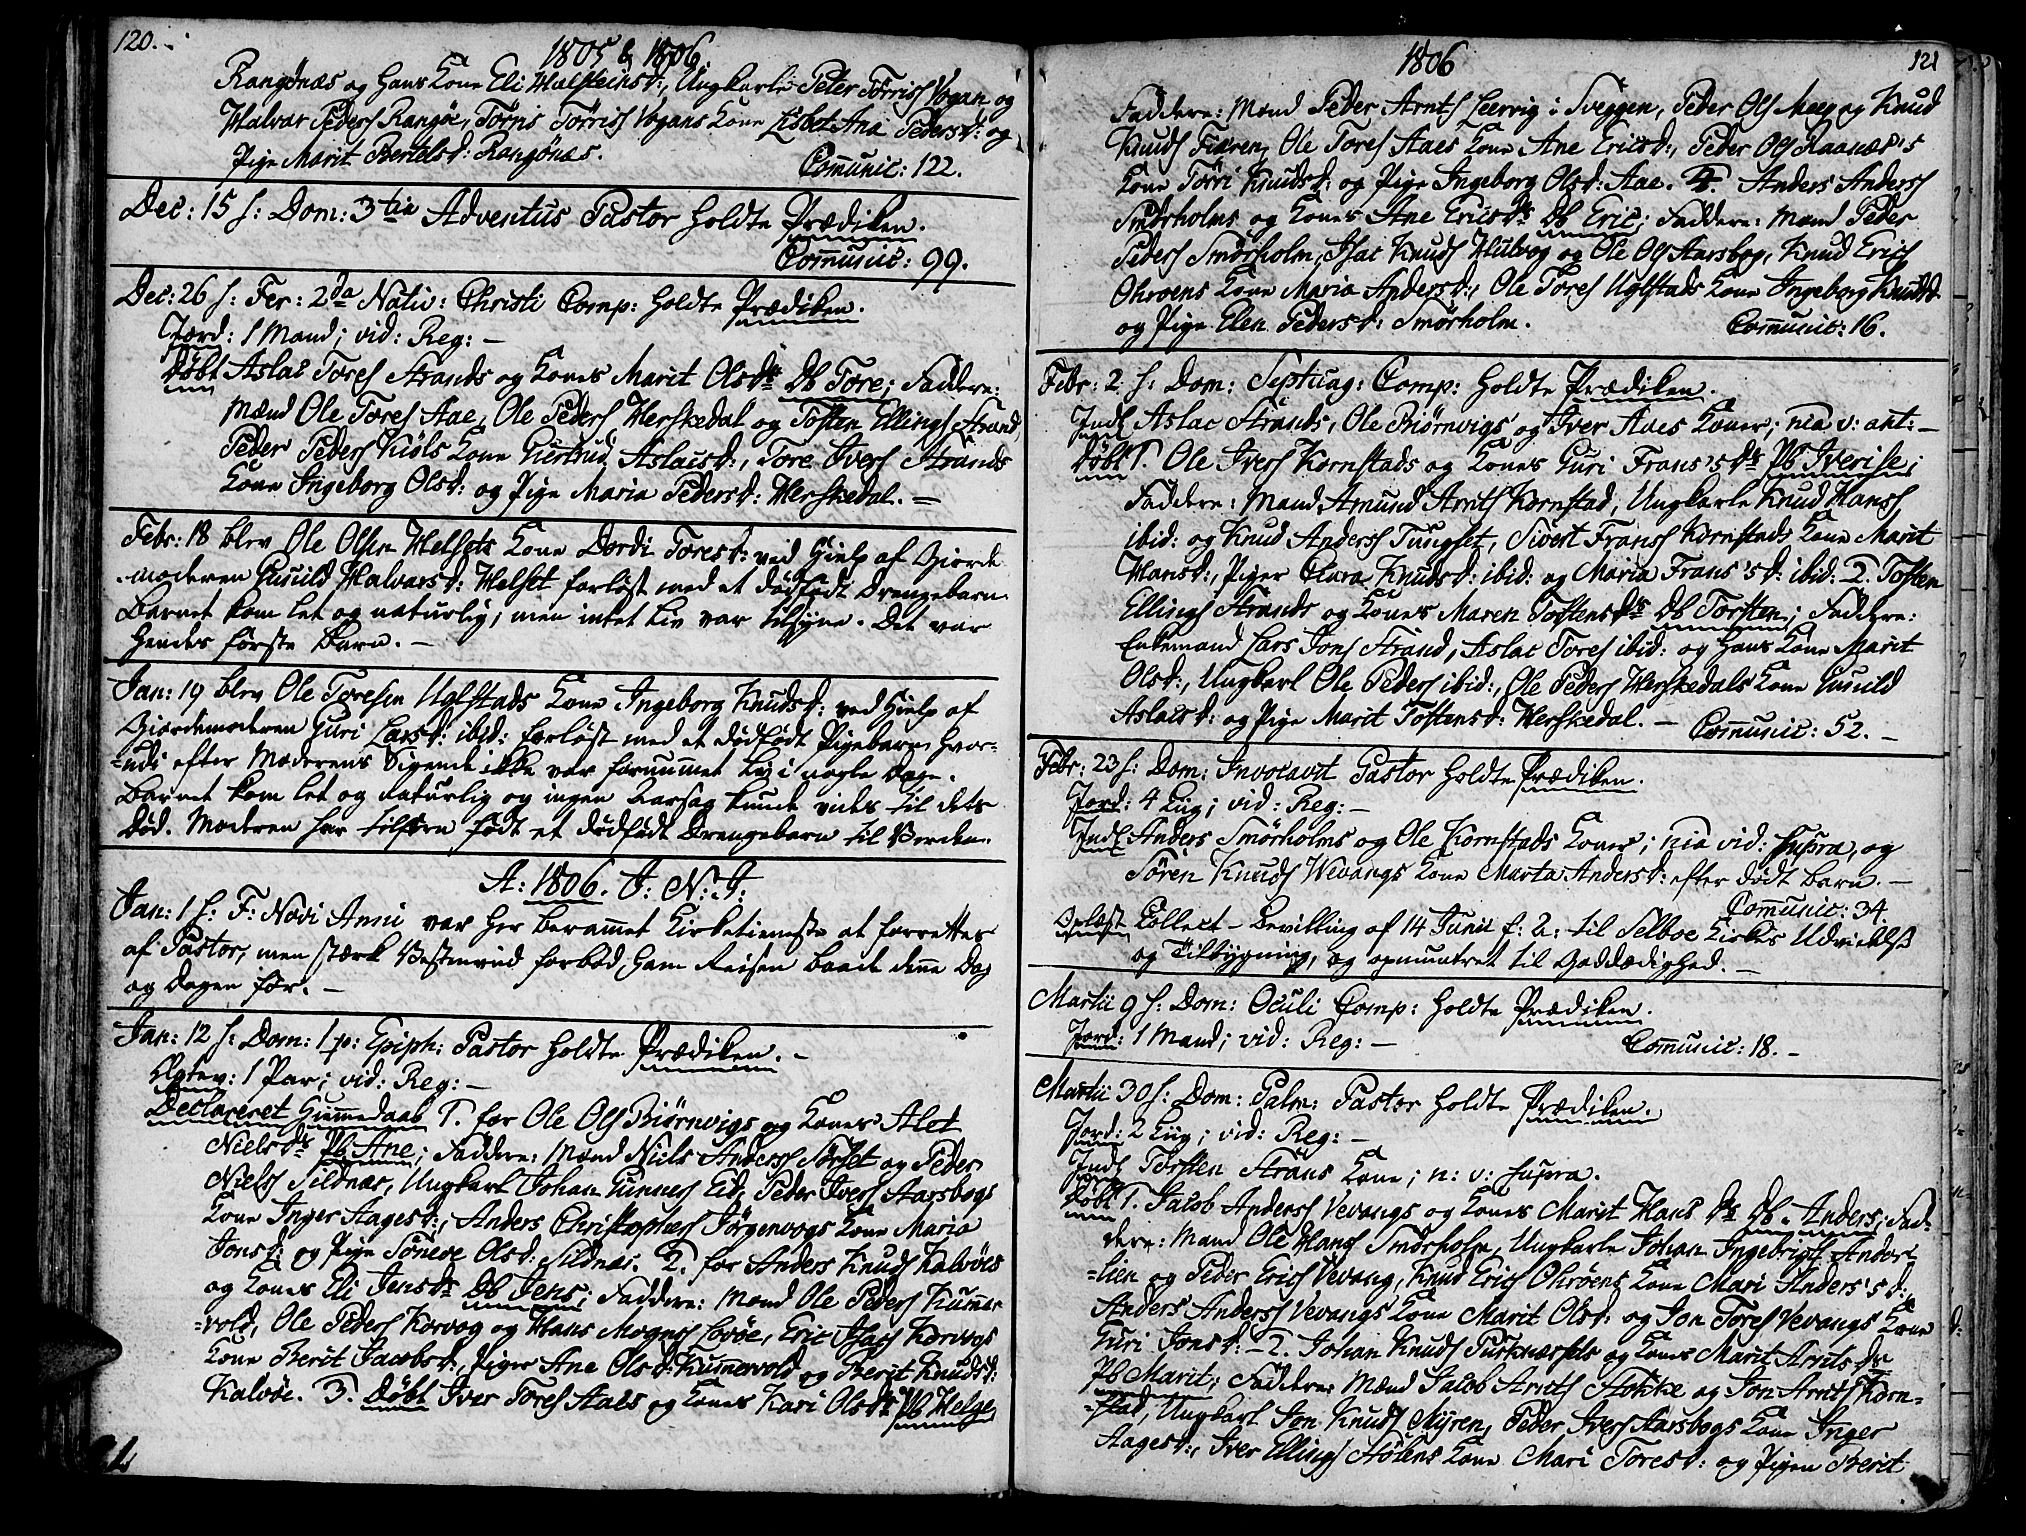 120.
1805 & 1806.
Rangønæs og hans Kone Eli Halsteinsd:, Ungkarle Peter Tørrisſ Vogan og
Halvar Pedersſ Rangøe, Tørris Tørrisſ Vogans Kone Lisbet Ana Pedersd: og
Pige Marit Bertelsd: Rangønæs. Com̄unic: 122.
Dec: 15 s: Dom: 3tia Adventus Pastor holdte Prædiken.
Com̄unic: 99.
Dec: 26 s: Fer: 2da Nativ: Christi Comp: holdte Prædiken.
Jord: 1 Mand; vid: Reg: –
Døbt Aslac Toresſ Strands og Kones Marit Olsdr Db Tore; Faddere:
Mænd Ole Toresſ Aae, Ole Pedersſ Herskedal og Tosten Ellingsſ Strand,
Peder Pedersſ Kiøls Kone Giertrud Aslacsd:, Tore Iversſ Strands
Kone Ingeborg Olsd: og Pige Maria Pedersd: Herskedal. –
Febr: 18 blev Ole Olsen Helsets Kone Dordi Toresd: ved Hielp af Giorde-
moderen Gunild Halvarsd: Helset forløst med et dødfødt Drengebarn.
Barnet kom let og naturlig, men intet Liv var tilsyne. Det var
hendes første Barn. –
Jan: 19 blev Ole Toresen Uglstads Kone Ingeborg Knudsd: ved Hielp af
Giordemoderen Guri Larsd: ibid: forløst med et dødfødt Pigebarn, hvor-
udi efter Moderens Sigende ikke var fornummet Liv i nogle Dage.
Barnet kom let og naturlig og ingen Aarsag kunde vides til dets
Død. Moderen har tilforn født et dødfødt Drengebarn til Verden.
A: 1806. J: N: J:
Jan: 1 s: F: Novi Anni var her berammet Kirketieneste at forrettes
af Pastor, men stærk Vestenvind forbød ham Reisen baade denne Dag
og Dagen før. –
Jan: 12 s: Dom: 1 p: Epiph: Pastor holdte Prædiken. –
Ægtev: 1 Par; vid: Reg: –
Declareret Hiemmedaab 1. for Ole Olsſ Biørnvigs og Kones Alet
Nielsdr Pb Ane; Faddere: Mænd Niels Andersſ Sørset og Peder
Nielsſ Sildnæs, Ungkarl Johan Gunnersſ Eid, Peder Iversſ Aarsbogs
Kone Inger Aagesd:, Anders Christophersſ Jørgenvogs Kone Maria
Jonsd: og Pige Søneve Olsd: Sildnæs. 2. for Anders Knudsſ Kalvøes
og Kones Eli Jensdr Db Jens; Faddere: Mænd Ole Pedersſ Kummer-
vold, Ole Pedersſ Korvog og Hans Mognsſ Lovøe, Eric Isacsſ Korvogs
Kone Berit Jacobsd:, Piger Ane Olsd: Kummervold og Berit Knudsd:
Kalvøe. 3. Døbt Iver Toresſ Aaes og Kones Kari Olsdr Pb Helge
1806
121
Faddere: Mænd Peder Arntsſ Leervig i Sveggen, Peder Olsſ Meeg og Knud
Knudsſ Fiæren, Ole Toresſ Aaes Kone Ane Ericsd:, Peder Olsſ Raanæs's
Kone Tørri Knudsd: og Pige Ingeborg Olsd: Aae. 4. Anders Andersſ
Smørholms og Kones Ane Ericsdr Db Eric; Faddere: Mænd Peder
Pedersſ Smørholm, Isac Knudsſ Hulvog og Ole Olsſ Aarsbog, Knud Ericsſ
Ohrøens Kone Maria Andersd:, Ole Toresſ Uglstads Kone Ingeborg Knudsd:
og Pige Elen Pedersd: Smørholm. Com̄unic: 16.
Febr: 2 s: Dom: Septuag: Comp: holdte Prædiken.
Indl Aslac Strands, Ole Biørnvigs og Iver Aaes Koner; nia v: ant: –
Døbt 1. Ole Iversſ Kornstads og Kones Guri Frans'sdr Pb Iverise;
Faddere: Mand Amund Arntsſ Kornstad, Ungkarle Knud Hansſ
ibid: og Knud Andersſ Tungset, Sivert Fransſ Kornstads Kone Marit
Hansd:, Piger Clara Knudsd: ibid: og Maria Frans'sd: ibid: 2. Tosten
Ellingsſ Strands og Kones Maren Tostensdr Db Torsten; Faddere:
Enkemand Lars Jonsſ Strand, Aslac Toresſ ibid: og hans Kone Marit
Olsd:, Ungkarl Ole Pedersſ ibid:, Ole Pedersſ Herskedals Kone Gunild
Aslacsd: og Pige Marit Tostensd: Herskedal. – Com̄unic: 52. –
Febr: 23 s: Dom: Invocavit Pastor holdte Prædiken.
Jord: 4 Liig; vid: Reg: –
Indl Anders Smørholms og Ole Kornstads Koner; nia vid: supra, og
Søren Knudsſ Wevangs Kone Marta Andersd: efter dødt Barn. –
Com̄unic: 34.
Oplæst Collect-Bevilling af 14 Junii f: 2: til Selboe Kirkes Udvidelse
og Tilbygning, og opmuntret til Gavmildighed. –
Martii 9 s: Dom: Oculi Comp: holdte Prædiken.
Jord: 1 Mand; vid: Reg: – Com̄unic: 18. –
Martii 30 s: Dom: Palm: Pastor holdte Prædiken.
Jord: 2 Liig; vid: Reg: –
Indl Torsten Strans Kone; n: v: supra.
Døbt 1. Jacob Andersſ Vevangs og Kones Marit Hansdr Db. Anders; Fad-
dere: Mand Ole Hansſ Smørholm, Ungkarle Johan Ingebrigtsſ Andori-
lien og Peder Ericsſ Vevang, Knud Ericsſ Ohrøens Kone Mari Anders'sd:,
Anders Andersſ Vevangs Kone Marit Olsd: og Jon Toresſ Vevangs Kone
Guri Jonsd: – 2. Johan Knudsſ Turknæs's og Kones Marit Arntsdr
Pb Marit; Faddere: Mænd Jacob Arntsſ Stokke og Jon Arntsſ Korn-
stad, Ungkarl Jon Knudsſ Myren, Peder Iversſ Aarsbogs Kone Inger
Aagesd:, Iver Ellingsſ Stokens Kone Mari Toresd: og Pigen Berit